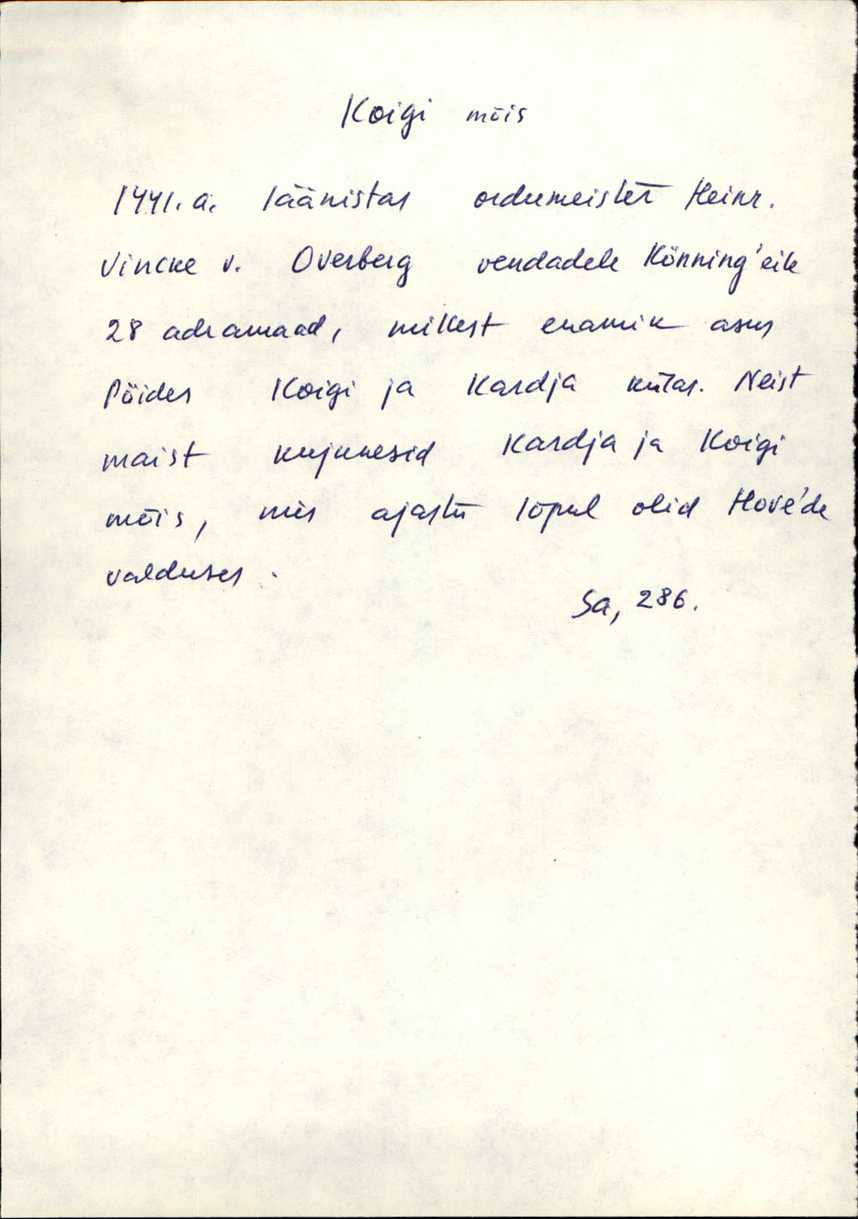 Koigi mõis
1441. a. läänistas ordumeister Heinr.
Vincke v. Overberg vendadele Könning'eile
28 adramaad, millest enamik asus
Pöides Koigi ja Kardja külas. Neist
maist kujunesid Kardja ja Koigi
mõis, mis ajastu lõpul olid Hove'de
valduses.
Sa, 286.